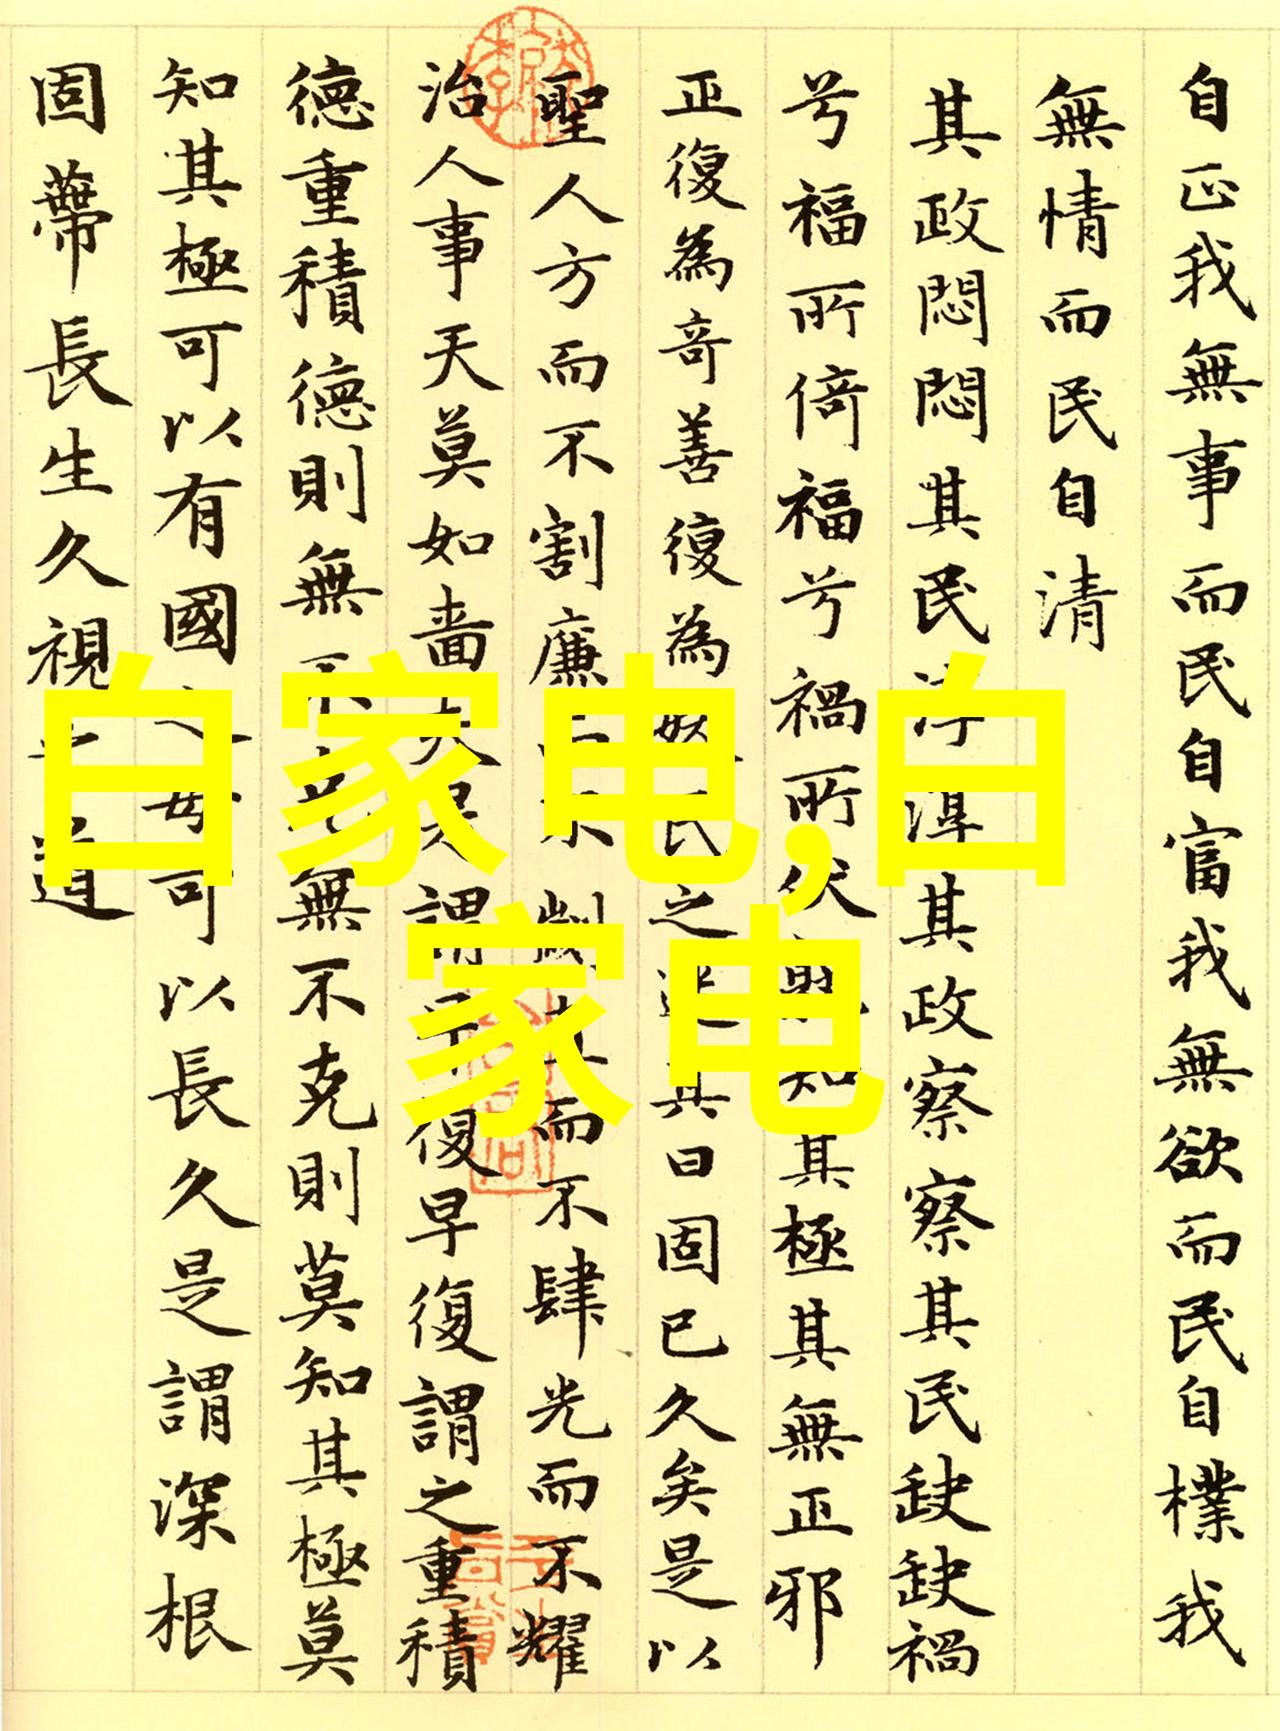 自正我無事而民自富我無欲而民自樸我
無情而民自清
其政悶悶其民淳淳其政察察其民缺缺禍
兮福所倚福兮禍所伏孰知其極其無正邪
正復為奇善復為妖民之迷其日固已久矣是以
聖人方而不割廉而不劌直而不肆光而不耀
治人事天莫如嗇夫是謂早復早復謂之重積
德重積德則無不克無不克則莫知其極莫
知其極可以有國之母可以長久是謂深根
固蔕長生久視之道
白家电,白
家电